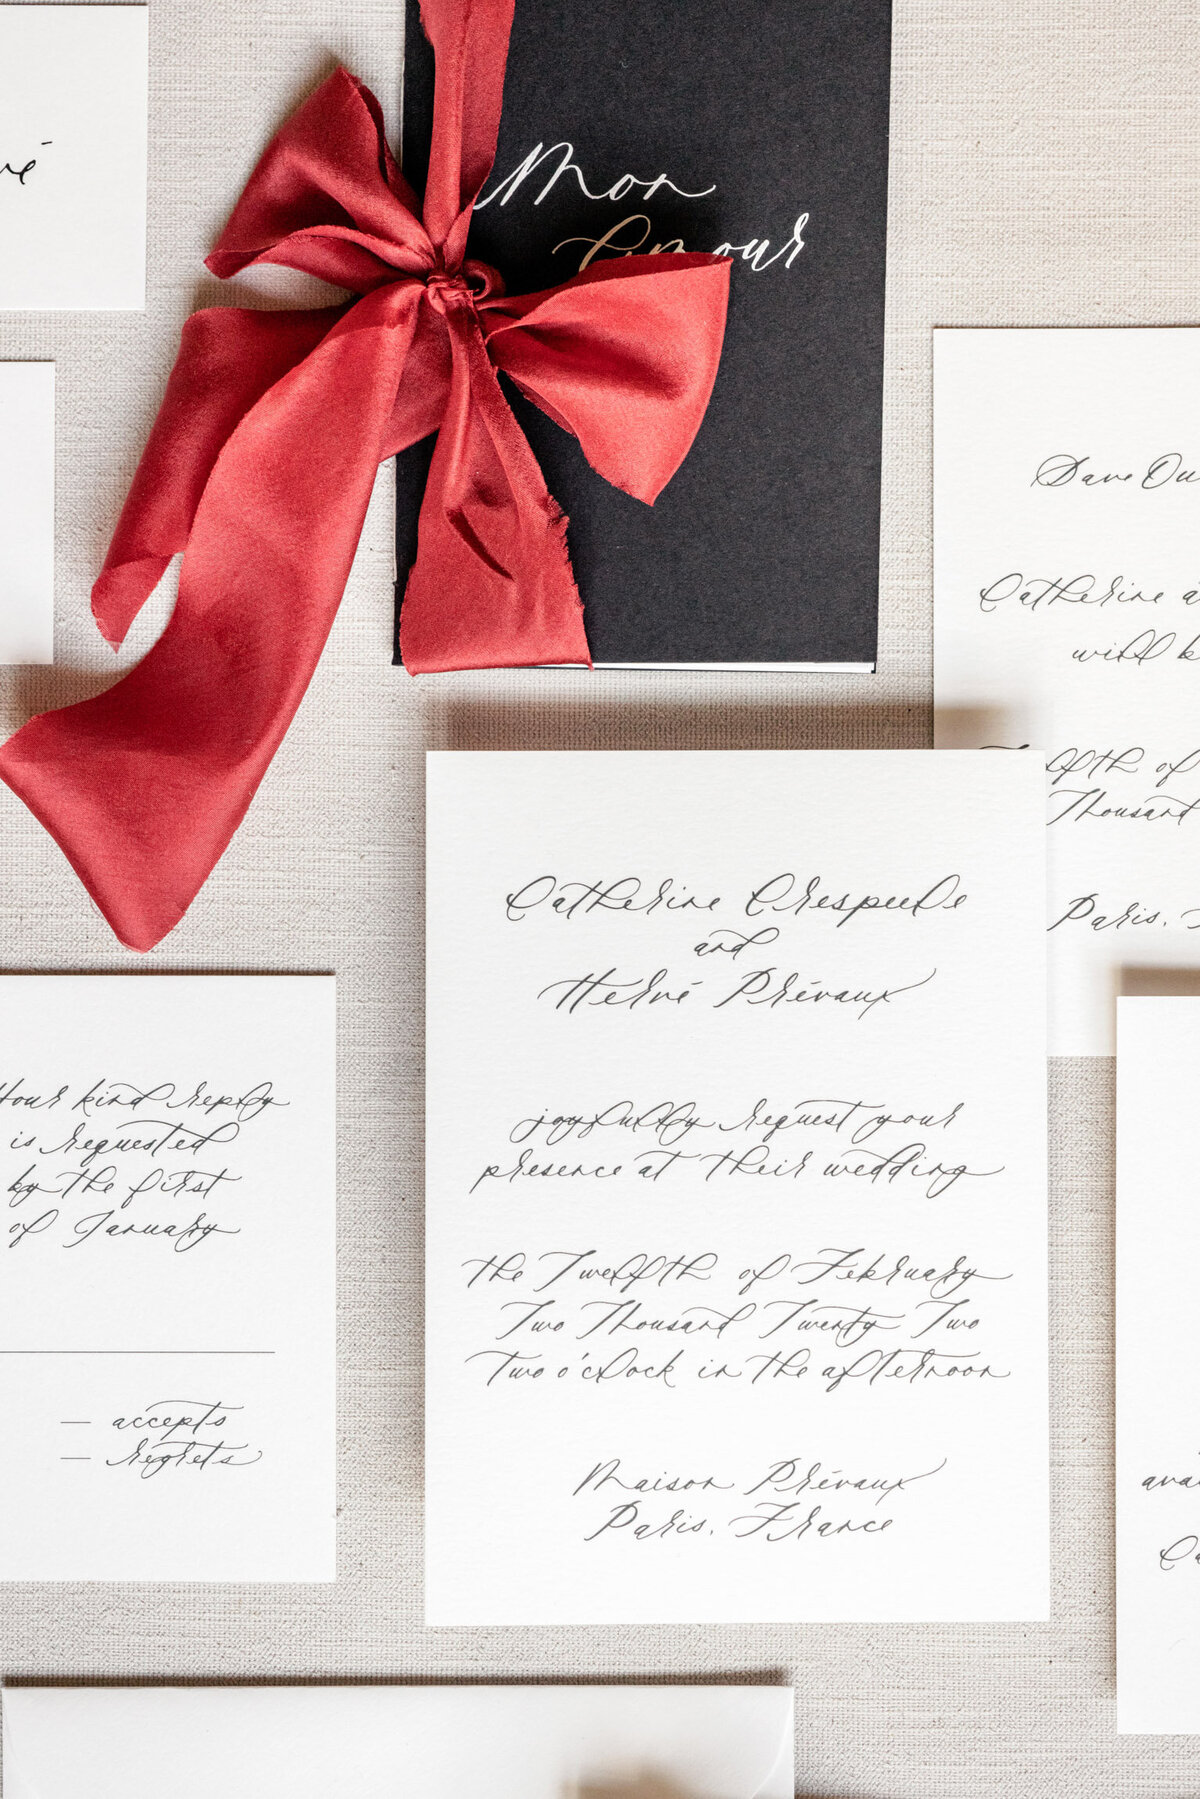 Mon
Amour
Save Our
Catherine
will
of
Thousand
Paris,
Catherine Crespeele
and
Hervé Prévaux
joyfully request your
presence at their wedding
the Twelfth of February
Two Thousand Twenty Two
Two o'clock in the afternoon
Maison Prévaux
Paris, France
Your kind reply
is requested
by the first
of January
— accepts
— regrets